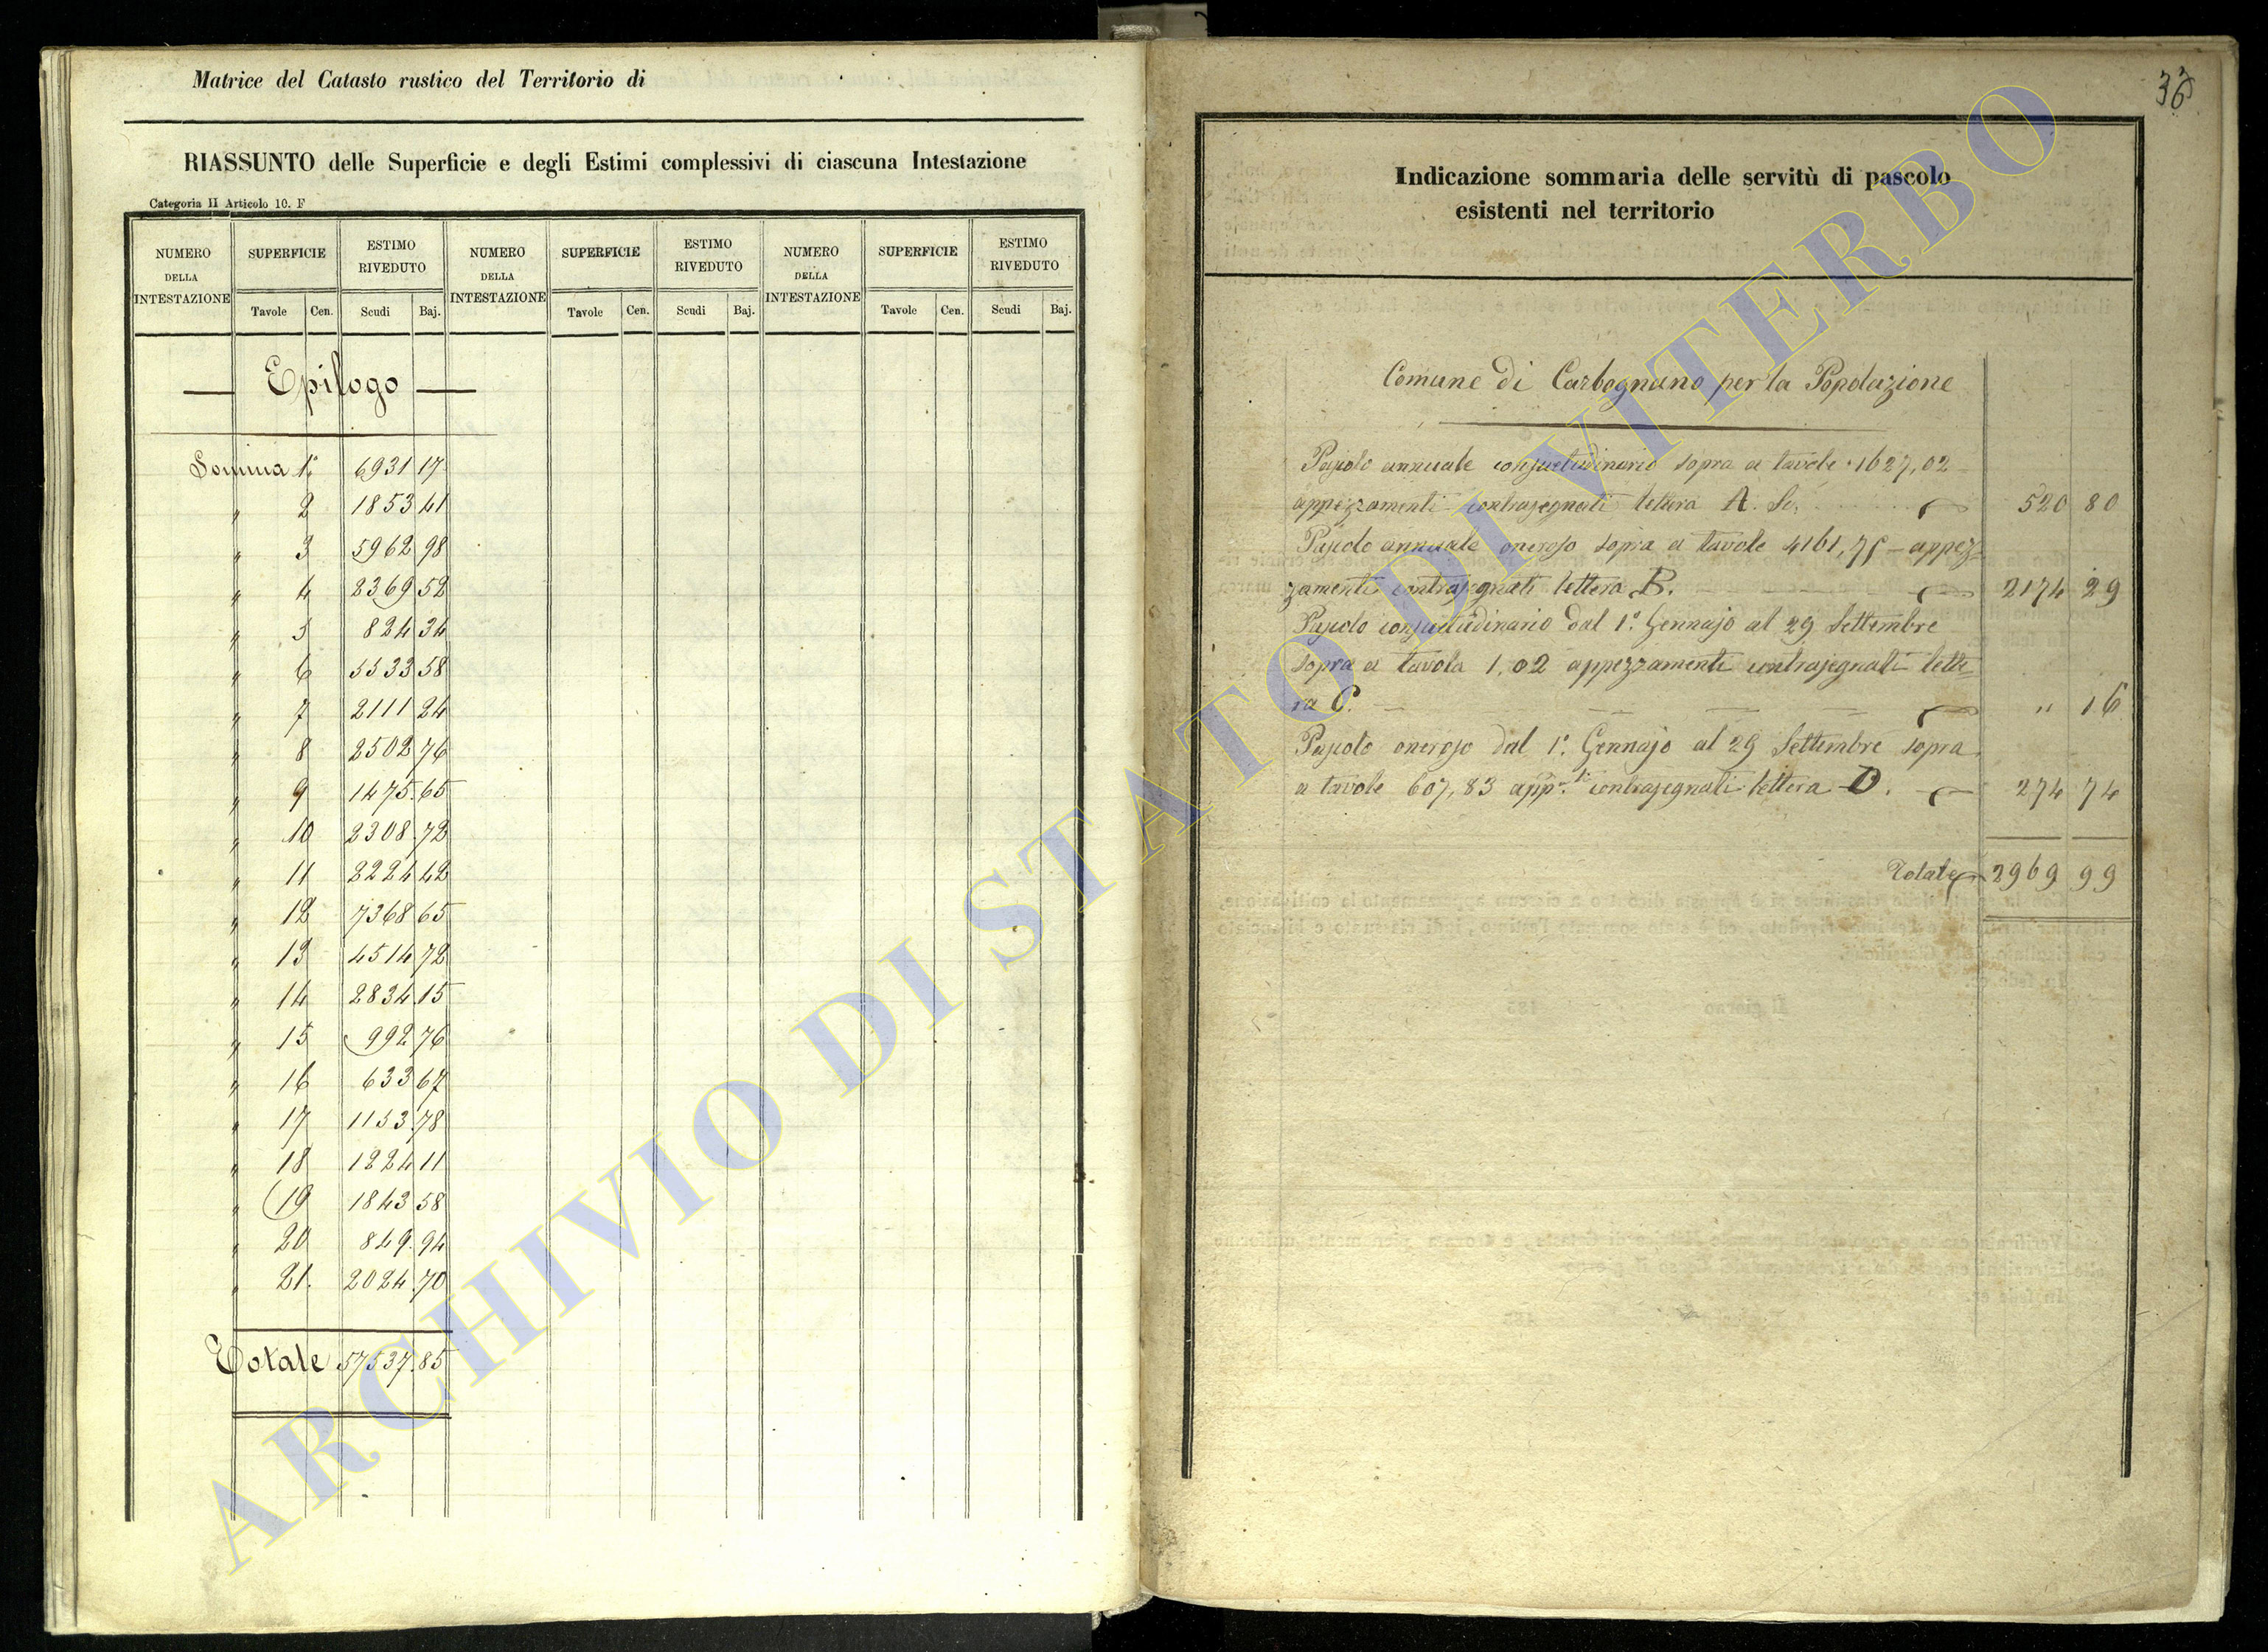 Matrice del Catasto rustico del Territorio di
RIASSUNTO delle Superficie e degli Estimi complessivi di ciascuna Intestazione
Categoria II Articolo 10. F
NUMERO DELLA INTESTAZIONE SUPERFICIE ESTIMO RIVEDUTO NUMERO DELLA INTESTAZIONE SUPERFICIE ESTIMO RIVEDUTO NUMERO DELLA INTESTAZIONE SUPERFICIE ESTIMO RIVEDUTO
Tavole Cen. Scudi Baj. Tavole Cen. Scudi Baj. Tavole Cen. Scudi Baj.
— Epilogo —
Somma 1ª 6931 17
" 2 1853 41
" 3 5962 98
" 4 2369 52
" 5 824 34
" 6 5533 58
" 7 2111 24
" 8 2502 76
" 9 1475.65
" 10 2308.72
" 11 2224 42
" 12 7368 65
" 13 4514 72
" 14 2834.15
" 15 992 76
" 16 633 67
" 17 1153.78
" 18 1224 11
" 19 1843 58
" 20 849.94
" 21. 2024.70
Totale 57537.85
36
Indicazione sommaria delle servitù di pascolo
esistenti nel territorio
Comune di Carbognano per la Popolazione
Pascolo annuale consuetudinario sopra a tavole 1627,02
appezzamenti contrasegnati lettera A. Sc. 520 80
Pascolo annuale oneroso sopra a tavole 4161,75 — appez=
zamenti contrasegnati lettera B. 2174 29
Pascolo consuetudinario dal 1.º Gennajo al 29 Settembre
sopra a tavola 1,02 appezzamenti contrasegnati lette=
ra C. " 16
Pascolo oneroso dal 1.º Gennajo al 29 Settembre sopra
a tavole 607,83 app.ti contrasegnati lettera D. 274 74
Totale 2969 99
ARCHIVIO DI STATO DI VITERBO